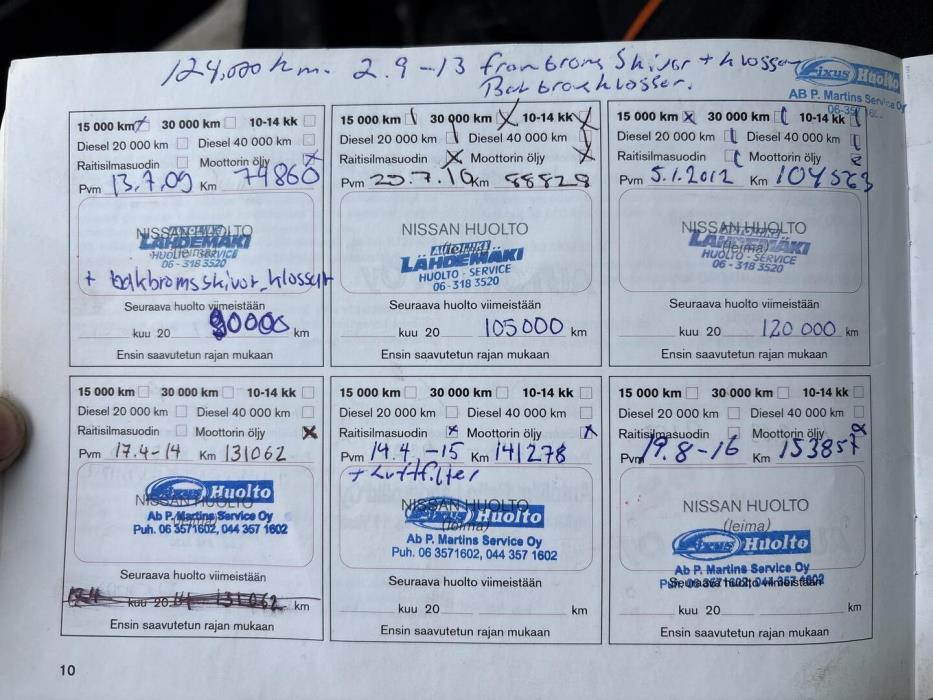 124,000 km. 2.9-13 frambroms Skivor + klossar
Bakbroxklossar.
Fixus Huolto
AB P. Martins Service Oy
15 000 km 30 000 km 10-14 kk
Diesel 20 000 km Diesel 40 000 km
Raitisilmasuodin Moottorin öljy x
Pvm 13.7.09 Km 79860
NISSAN HUOLTO
(leima)
LÄHDEMÄKI
HUOLTO - SERVICE
06 - 318 3520
+ bakbromsskivor, klossar
Seuraava huolto viimeistään
kuu 20 90000 km
Ensin saavutetun rajan mukaan
15 000 km 30 000 km x 10-14 kk x
Diesel 20 000 km Diesel 40 000 km
Raitisilmasuodin x Moottorin öljy x
Pvm 20.7.10 Km 88828
NISSAN HUOLTO
(leima)
LÄHDEMÄKI
HUOLTO - SERVICE
06 - 318 3520
Seuraava huolto viimeistään
kuu 20 105000 km
Ensin saavutetun rajan mukaan
15 000 km x 30 000 km 10-14 kk
Diesel 20 000 km Diesel 40 000 km
Raitisilmasuodin Moottorin öljy
Pvm 5.1.2012 Km 104563
NISSAN HUOLTO
(leima)
LÄHDEMÄKI
HUOLTO - SERVICE
06 - 318 3520
Seuraava huolto viimeistään
kuu 20 120 000 km
Ensin saavutetun rajan mukaan
15 000 km 30 000 km 10-14 kk
Diesel 20 000 km Diesel 40 000 km
Raitisilmasuodin Moottorin öljy x
Pvm 17.4-14 Km 131062
NISSAN HUOLTO
(leima)
Fixus Huolto
Ab P. Martins Service Oy
Puh. 06 3571602, 044 357 1602
Seuraava huolto viimeistään
kuu 20 131062 km
Ensin saavutetun rajan mukaan
15 000 km 30 000 km 10-14 kk
Diesel 20 000 km Diesel 40 000 km
Raitisilmasuodin x Moottorin öljy x
Pvm 14.4.-15 Km 141278
+ Luftfilter
NISSAN HUOLTO
(leima)
Fixus Huolto
Ab P. Martins Service Oy
Puh. 06 3571602, 044 357 1602
Seuraava huolto viimeistään
kuu 20 km
Ensin saavutetun rajan mukaan
15 000 km 30 000 km 10-14 kk
Diesel 20 000 km Diesel 40 000 km
Raitisilmasuodin Moottorin öljy x
Pvm 19.8-16 Km 153857
NISSAN HUOLTO
(leima)
Fixus Huolto
Ab P. Martins Service Oy
Puh. 06 3571602, 044 357 1602
Seuraava huolto viimeistään
kuu 20 km
Ensin saavutetun rajan mukaan
10